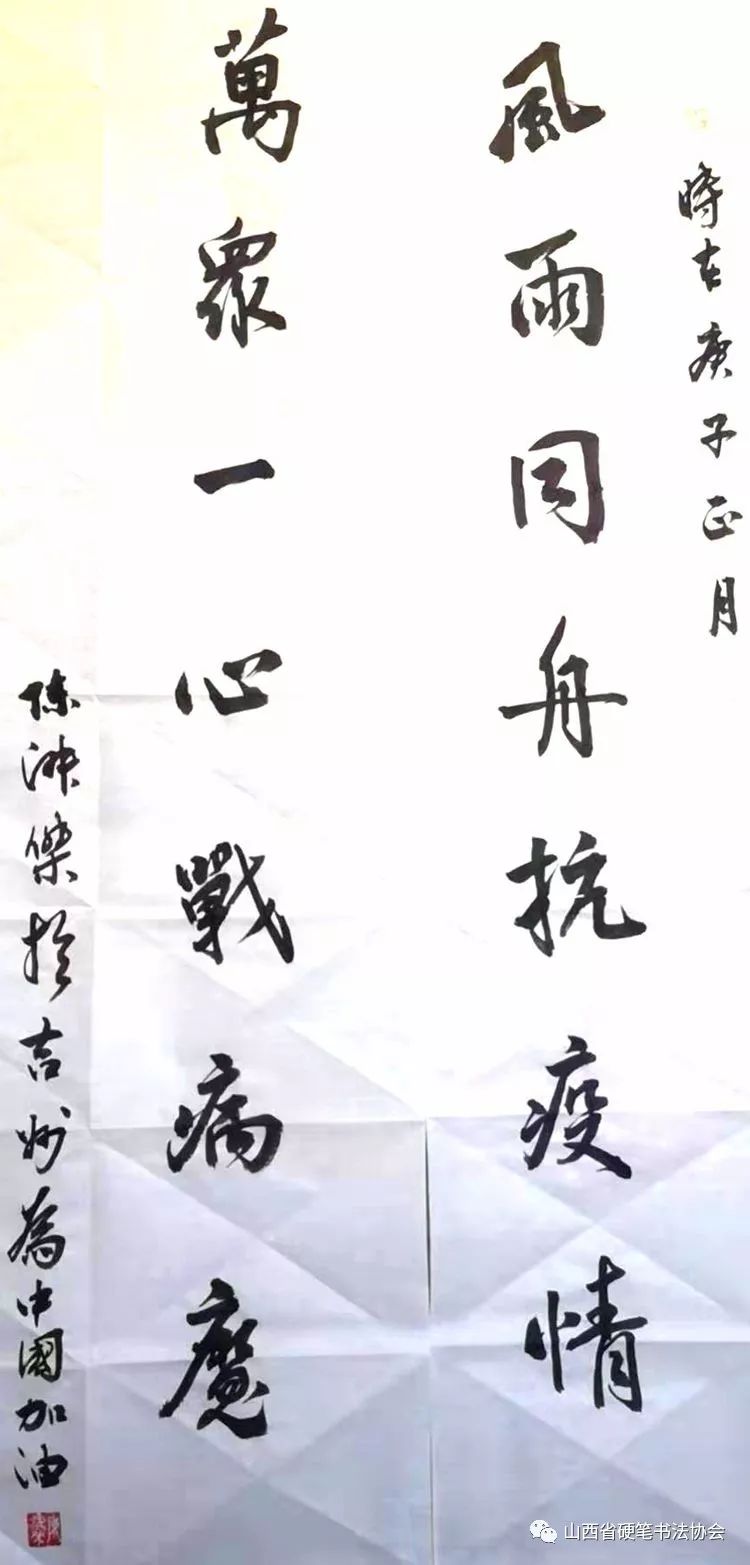 時在庚子正月
風雨同舟抗疫情
萬眾一心戰病魔
陳洪傑於吉州為中國加油
山西省硬笔书法协会